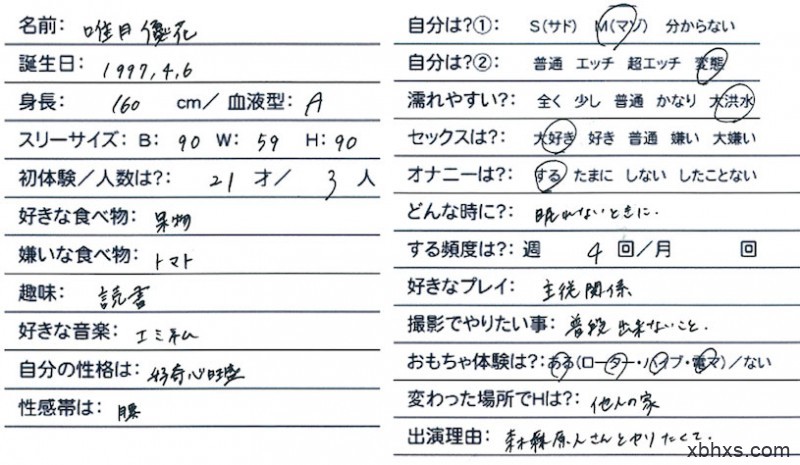 名前: 唯月優花
誕生日: 1997,4,6
身長: 160 cm/ 血液型: A
スリーサイズ: B: 90 W: 59 H: 90
初体験/人数は?: 21 才/ 3 人
好きな食べ物: 果物
嫌いな食べ物: トマト
趣味: 読書
好きな音楽: エミネム
自分の性格は: 好奇心旺盛
性感帯は: 腰
自分は?①: S(サド) M(マゾ) 分からない
自分は?②: 普通 エッチ 超エッチ 変態
濡れやすい?: 全く 少し 普通 かなり 大洪水
セックスは?: 大好き 好き 普通 嫌い 大嫌い
オナニーは?: する たまに しない したことない
どんな時に?: 眠れないときに.
する頻度は?: 週 4 回/月 回
好きなプレイ: 主従関係
撮影でやりたい事: 普段出来ないこと.
おもちゃ体験は?: ある(ローター・バイブ・電マ)/ない
変わった場所でHは?: 他人の家
出演理由: 森林原人さんとやりたくて.
xbhxs.com